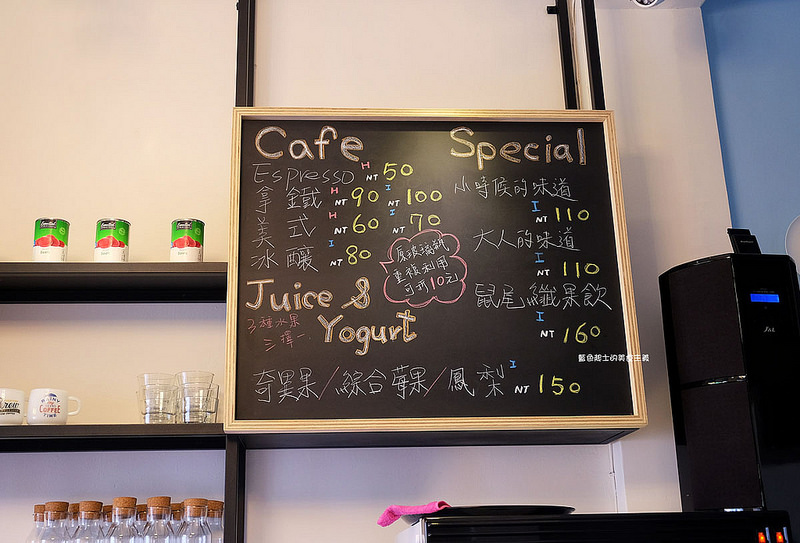 Cafe
Espresso H NT 50
拿鐵 H NT 90 I NT 100
美式 H NT 60 I NT 70
冰釀 I NT 80
原玻璃瓶
重複利用
可折10元
Special
小時候的味道
I NT 110
大人的味道
I NT 110
鼠尾纖果飲
I NT 160
Juice &
Yogurt
3種水果
三擇一
奇異果/綜合莓果/鳳梨 I NT 150
藍色起士的美食主義
COFFEE